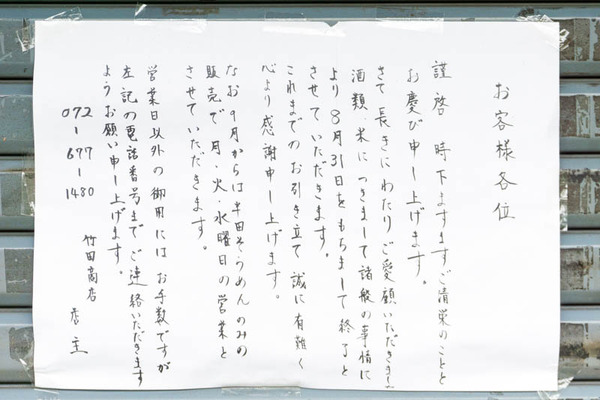 お客様各位
謹啓 時下ますますご清栄のことと
お慶び申し上げます。
さて 長きにわたりご愛顧いただきました
酒類・米につきまして諸般の事情に
より8月31日をもちまして終了と
させていただきます。
これまでのお引き立て誠に有難く
心より感謝申し上げます。
なお9月からは半田そうめんのみの
販売で月・火・水曜日の営業と
させていただきます。
営業日以外の御用には お手数ですが
左記の電話番号まで ご連絡いただきます
ようお願い申し上げます。
072-677-1480
竹田商店 店主